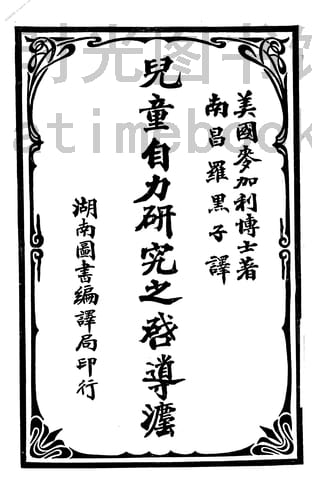 时光图书馆
atimebook
美國麥加利博士著
南昌羅黑子譯
兒童自力研究之啓導灋
湖南圖書編譯局印行